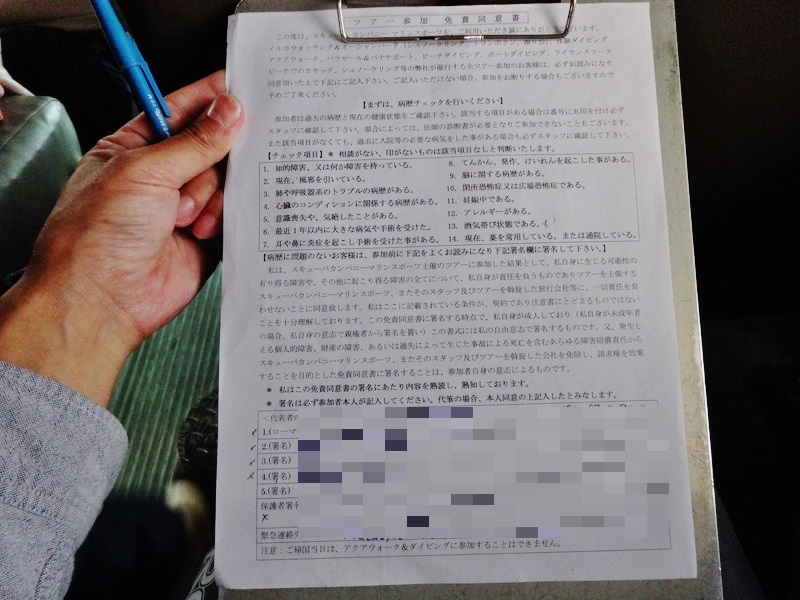 ツアー参加 免責同意書
この度は、スキューバカンパニーマリンスポーツを、ご利用いただき誠にありがとうございます。
イルカウォッチング&
ビーチダイビング、パラセール&バナナボート、ビーチダイビング、ボートダイビング、ライセンスコース
ビーチでのカヤック、シュノーケリング等の弊社が催行する全ツアー参加のお客様は、必ずお読みになり
同意頂いた上で下記にご記入下さい。ご記入いただけない場合、参加をお断りする場合もございますので
予めご了承ください。
【まずは、病歴チェックを行いください】
参加者は過去の病歴と現在の健康状態をご確認下さい。該当する項目がある場合は番号に丸印を付け必ず
スタッフに確認して下さい。場合によっては、医師の診断書が必要となりご参加できないこともございます。
また該当項目がなくても、過去に入院等の必要な病気をした事がある場合も必ずスタッフに確認して下さい。
【チェック項目】＊ 相談がない、印がないものは該当項目なしと判断いたします。
1. 知的障害、又は何か障害を持っている。
2. 現在、風邪を引いている。
3. 肺や呼吸器系のトラブルの病歴がある。
4. 心臓のコンディションに関係する病歴がある。
5. 意識喪失や、気絶したことがある。
6. 最近1年以内に大きな病気や手術を受けた。
7. 耳や鼻に炎症を起こし手術を受けた事がある。
8. てんかん、発作、けいれんを起こした事がある。
9. 脳に関する病歴がある。
10. 閉所恐怖症又は広場恐怖症である。
11. 妊娠中である。
12. アレルギーがある。
13. 酒気帯び状態である。
14. 現在、薬を常用している。または通院している。
【病歴に問題のないお客様は、参加前に下記をよくお読みになり下記署名欄に署名して下さい。】
私は、スキューバカンパニーマリンスポーツ主催のツアーに参加した結果として、私自身に生じる可能性の
有り得る障害や、その他に起こり得る障害の全てについて、私自身が責任を負うものでありツアーを主催する
スキューバカンパニーマリンスポーツ、またそのスタッフ及びツアーを斡旋した旅行会社等に、一切責任を負
わせないことに同意致します。私はここに記載されている条件が、契約であり注意書にとどまるものではない
ことを十分理解しております。この免責同意書に署名する時点で、私自身が成人しており（私自身が未成年者
の場合、私自身の意志で親権者から署名を貰い）この書式には私の自由意志で署名するものです。又、発生し
える個人的障害、財産の障害、あるいは過失によって生じた事故による死を含むあらゆる障害賠償責任から
スキューバカンパニーマリンスポーツ、またそのスタッフ及びツアーを斡旋した会社を免除し、請求権を放棄
することを目的とした免責同意書に署名することは、参加者自身の意志によるものです。
＊ 私はこの免責同意書の署名にあたり内容を熟読し、熟知しております。
＊ 署名は必ず参加者本人が記入してください。代筆の場合、本人同意の上記入したとみなします。
＜代表者の
1.(ローマ
2.(署名)
3.(署名)
4.(署名)
5.(署名)
保護者署名
緊急連絡先
注意：ご帰国当日は、アクアウォーク&ダイビングに参加することはできません。